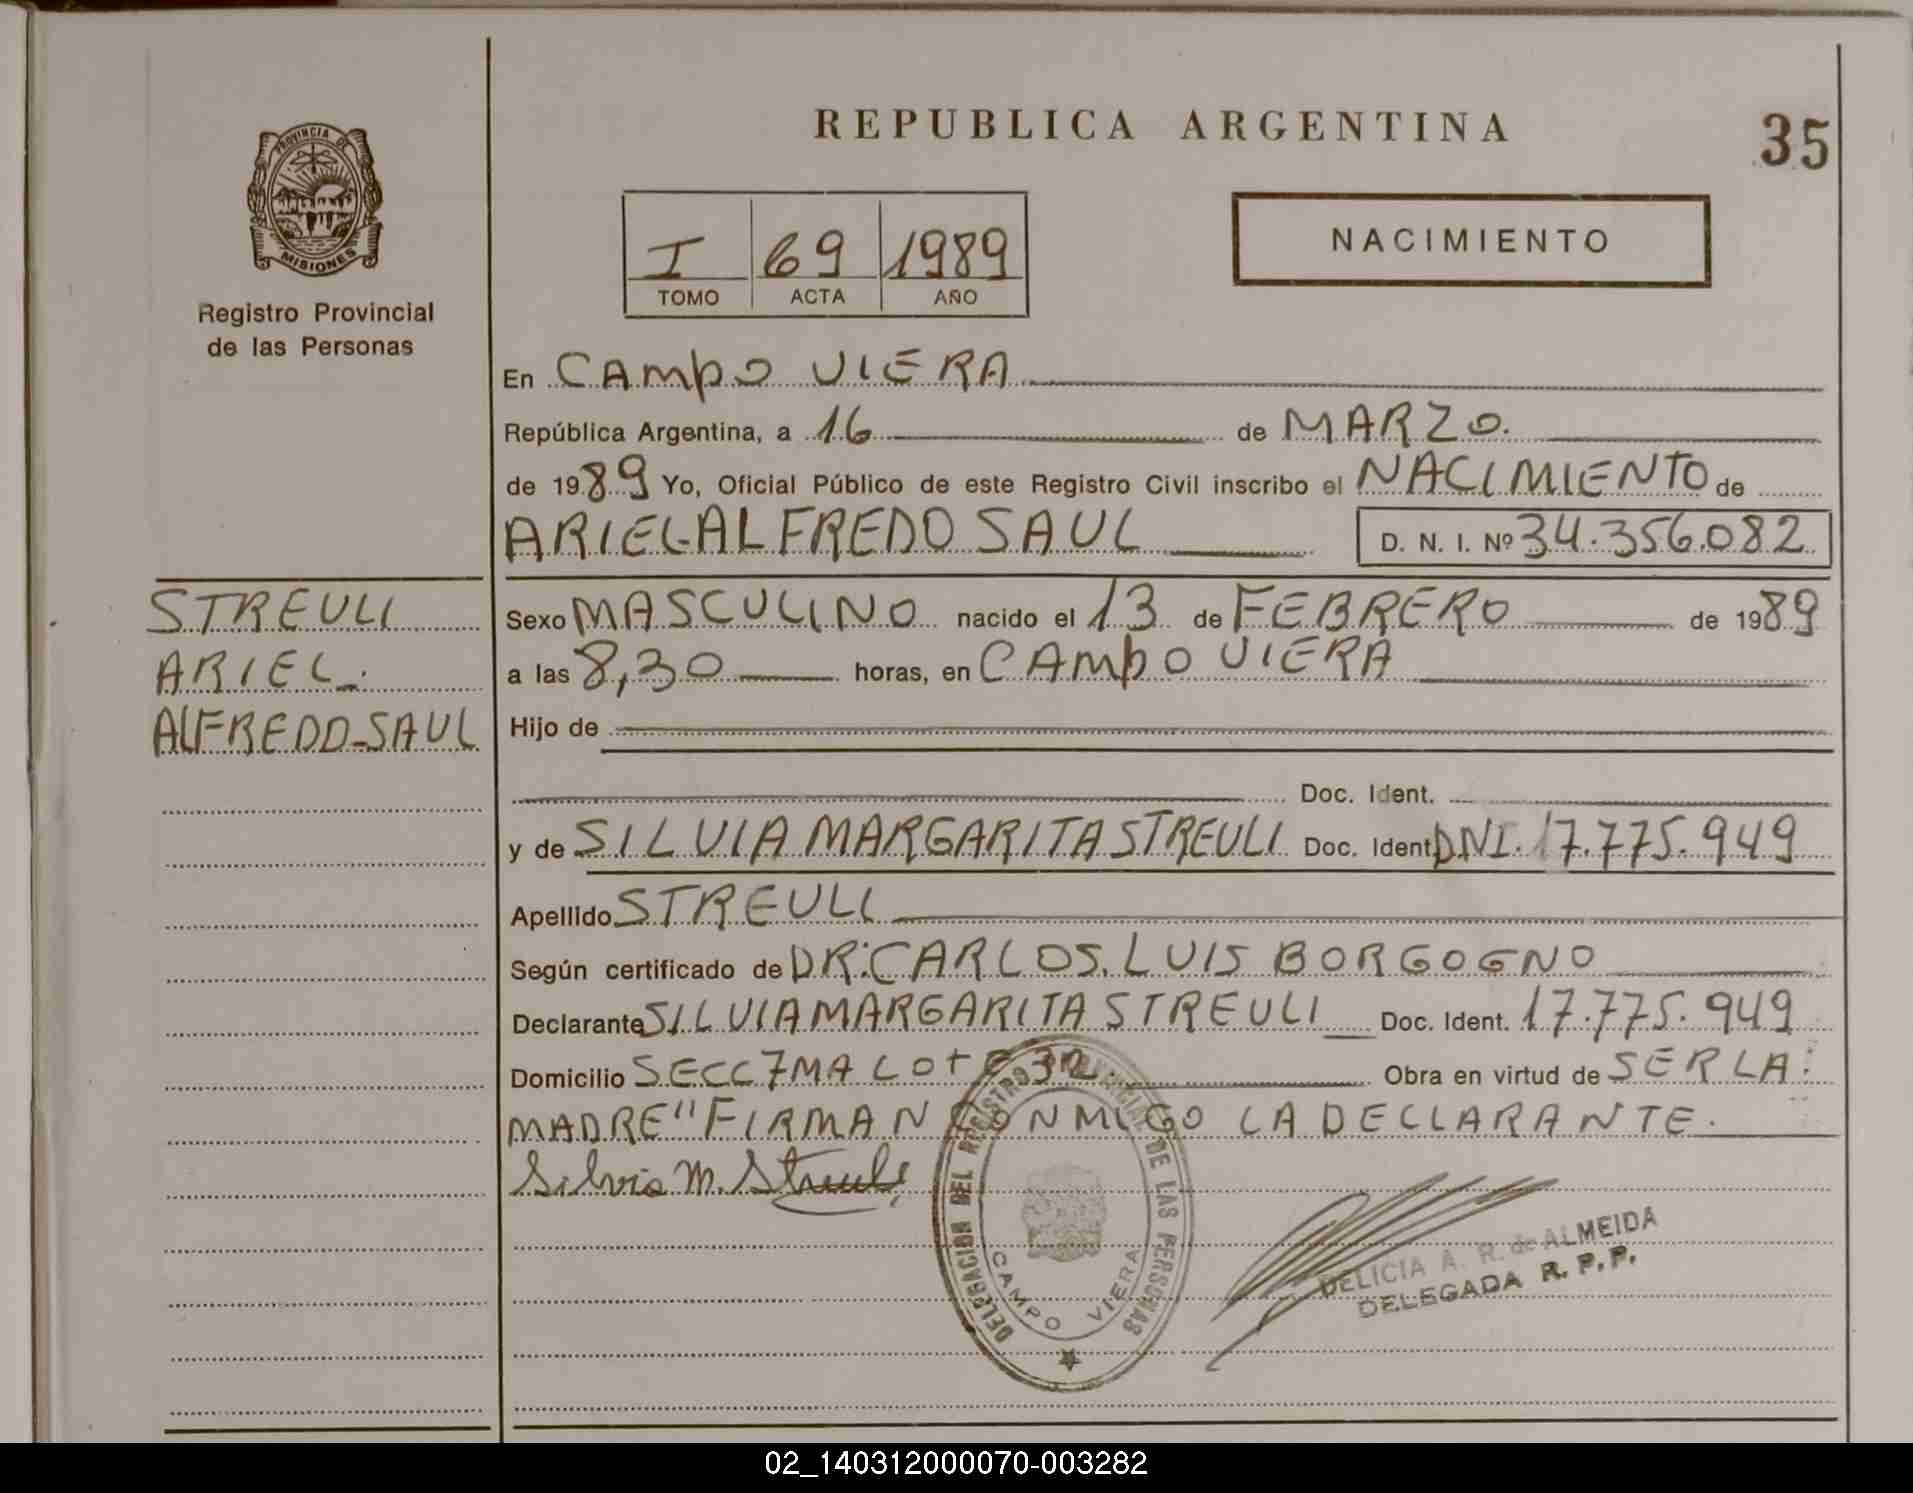 REPUBLICA ARGENTINA
35
PROVINCIA DE
MISIONES
Registro Provincial
de las Personas
I 69 1989
TOMO ACTA AÑO
NACIMIENTO
En CAMPO VIERA
República Argentina, a 16 de MARZO.
de 1989 Yo, Oficial Público de este Registro Civil inscribo el NACIMIENTO de
ARIEL-ALFREDO SAUL D. N. I. Nº 34.356.082
STREULI
ARIEL-.
ALFREDO-SAUL
Sexo MASCULINO nacido el 13 de FEBRERO de 1989
a las 8,30 horas, en CAMPO VIERA
Hijo de
Doc. Ident.
y de SILVIA MARGARITA STREULI Doc. Ident. DNI. 17.775.949
Apellido STREULI
Según certificado de DR: CARLOS. LUIS BORGOGNO
Declarante SILVIA MARGARITA STREULI Doc. Ident. 17.775.949
Domicilio SECC 7MA LOTE 32 Obra en virtud de SER LA:
MADRE" FIRMAN CONMIGO LA DECLARANTE.
Silvia M. Streuli
DELEGACION DEL REGISTRO PROVINCIAL DE LAS PERSONAS
CAMPO VIERA
DELICIA A. R. de ALMEIDA
DELEGADA R. P. P.
02_140312000070-003282